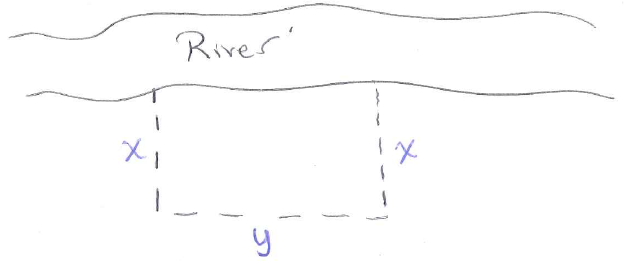 River
x x
y